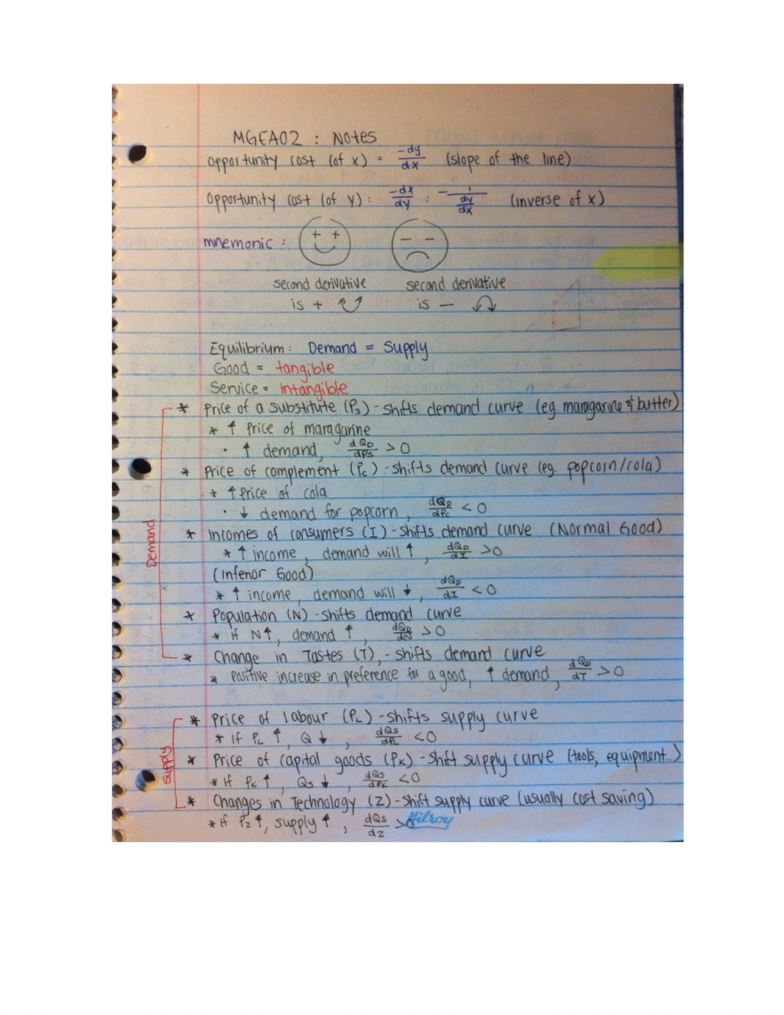 MGEA02 : Notes
Opportunity cost (of x) = -dy/dx (slope of the line)
Opportunity cost (of y) : -dx/dy : - 1/(dy/dx) (inverse of x)
mnemonic : + + - -
second derivative second derivative
is + is -
Equilibrium: Demand = Supply
Good = tangible
Service = intangible
* Price of a substitute (Ps) - shifts demand curve (eg. maragarine & butter)
* ↑ Price of maragarine
· ↑ demand, dQD/dPs > 0
* Price of complement (Pc) - shifts demand curve (eg. popcorn/cola)
* ↑ Price of cola
· ↓ demand for popcorn, dQD/dPc < 0
Demand
* Incomes of consumers (I) - shifts demand curve (Normal Good)
* ↑ income, demand will ↑, dQD/dI > 0
(Inferior Good)
* ↑ income, demand will ↓, dQD/dI < 0
* Population (N) - shifts demand curve
* if N↑, demand ↑, dQD/dN > 0
* Change in Tastes (T), - shifts demand curve
* positive increase in preference for a good, ↑ demand, dQD/dT > 0
Supply
* Price of labour (PL) - shifts supply curve
* If PL ↑, Q ↓, dQs/dPL < 0
* Price of capital goods (PK) - shift supply curve (tools, equipment..)
* If PK ↑, Qs ↓, dQs/dPK < 0
* Changes in Technology (Z) - shift supply curve (usually cost saving)
* If PZ ↑, supply ↑, dQs/dZ > 0 Hilroy